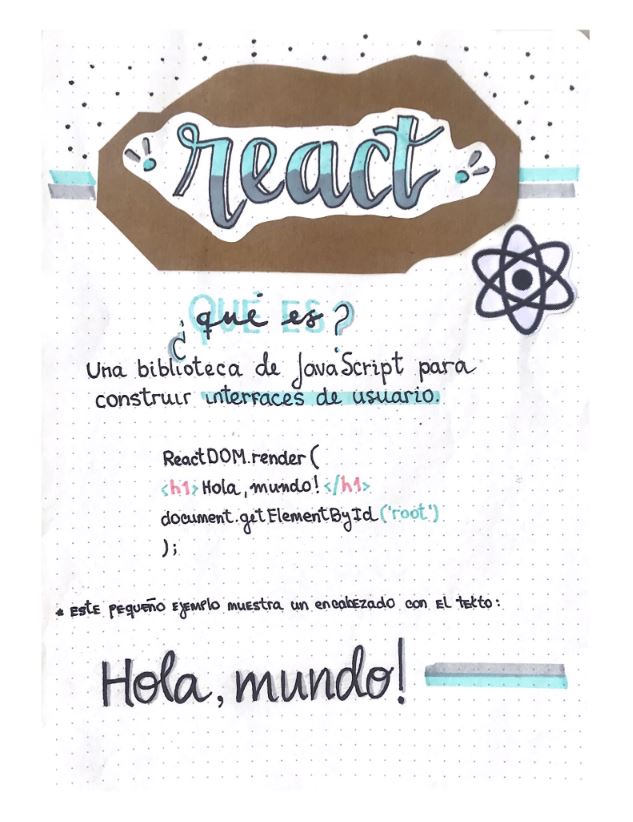 react
¿qué es?
Una biblioteca de JavaScript para
construir interfaces de usuario.
ReactDOM.render(
<h1>Hola, mundo!</h1>
document.getElementById('root')
);
* ESTE PEQUEÑO EJEMPLO MUESTRA UN ENCABEZADO CON EL TEXTO:
Hola, mundo!